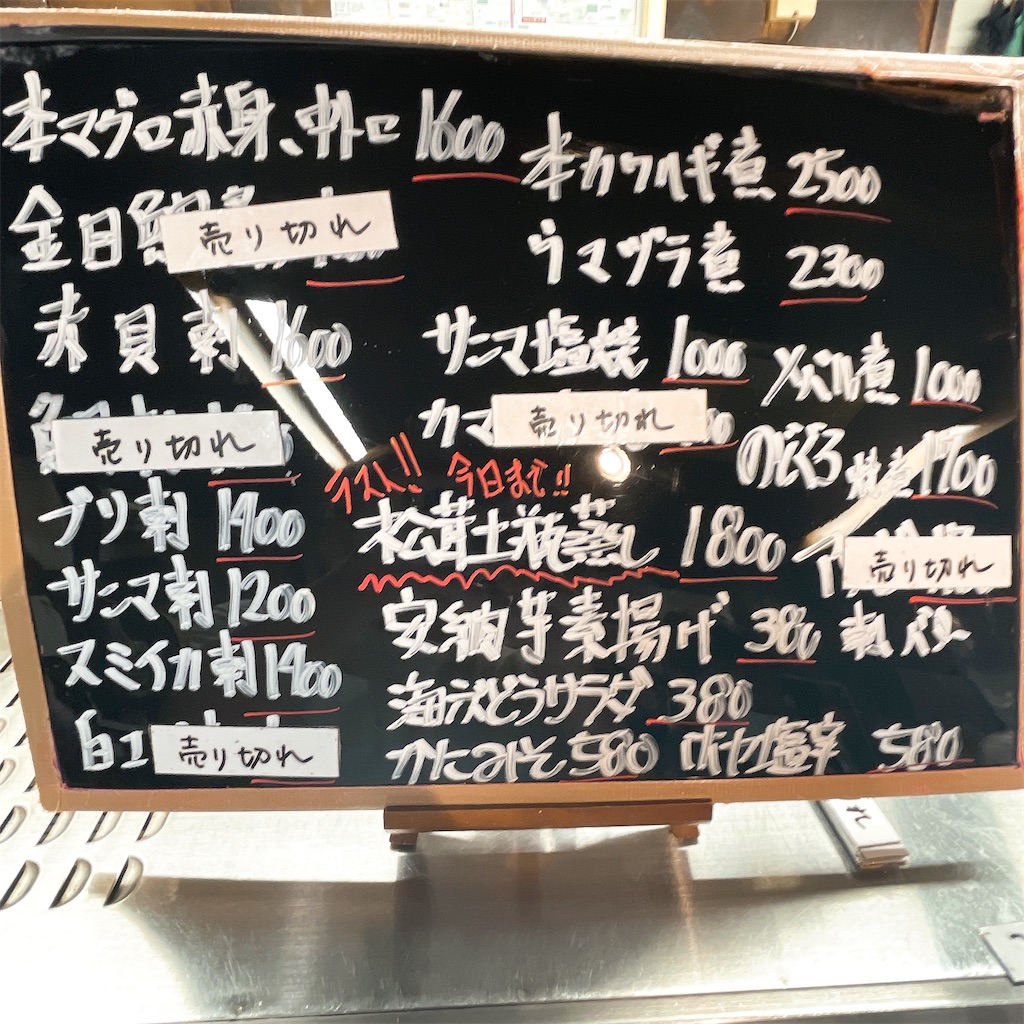 本マグロ赤身、中トロ 1600
金目鯛 売り切れ
赤貝刺 1600
売り切れ
ブリ刺 1400
サンマ刺 1200
スミイカ刺 1400
白エ 売り切れ
本カワハギ煮 2500
ウマヅラ煮 2300
サンマ塩焼 1000
メバル煮 1000
カマ 売り切れ
のどぐろ 焼煮 1700
ラスト!! 今日まで!!
松茸土瓶蒸し 1800
売り切れ
安納芋素揚げ 380
バター
海ぶどうサラダ 380
かにみそ 580
塩辛 580
れ